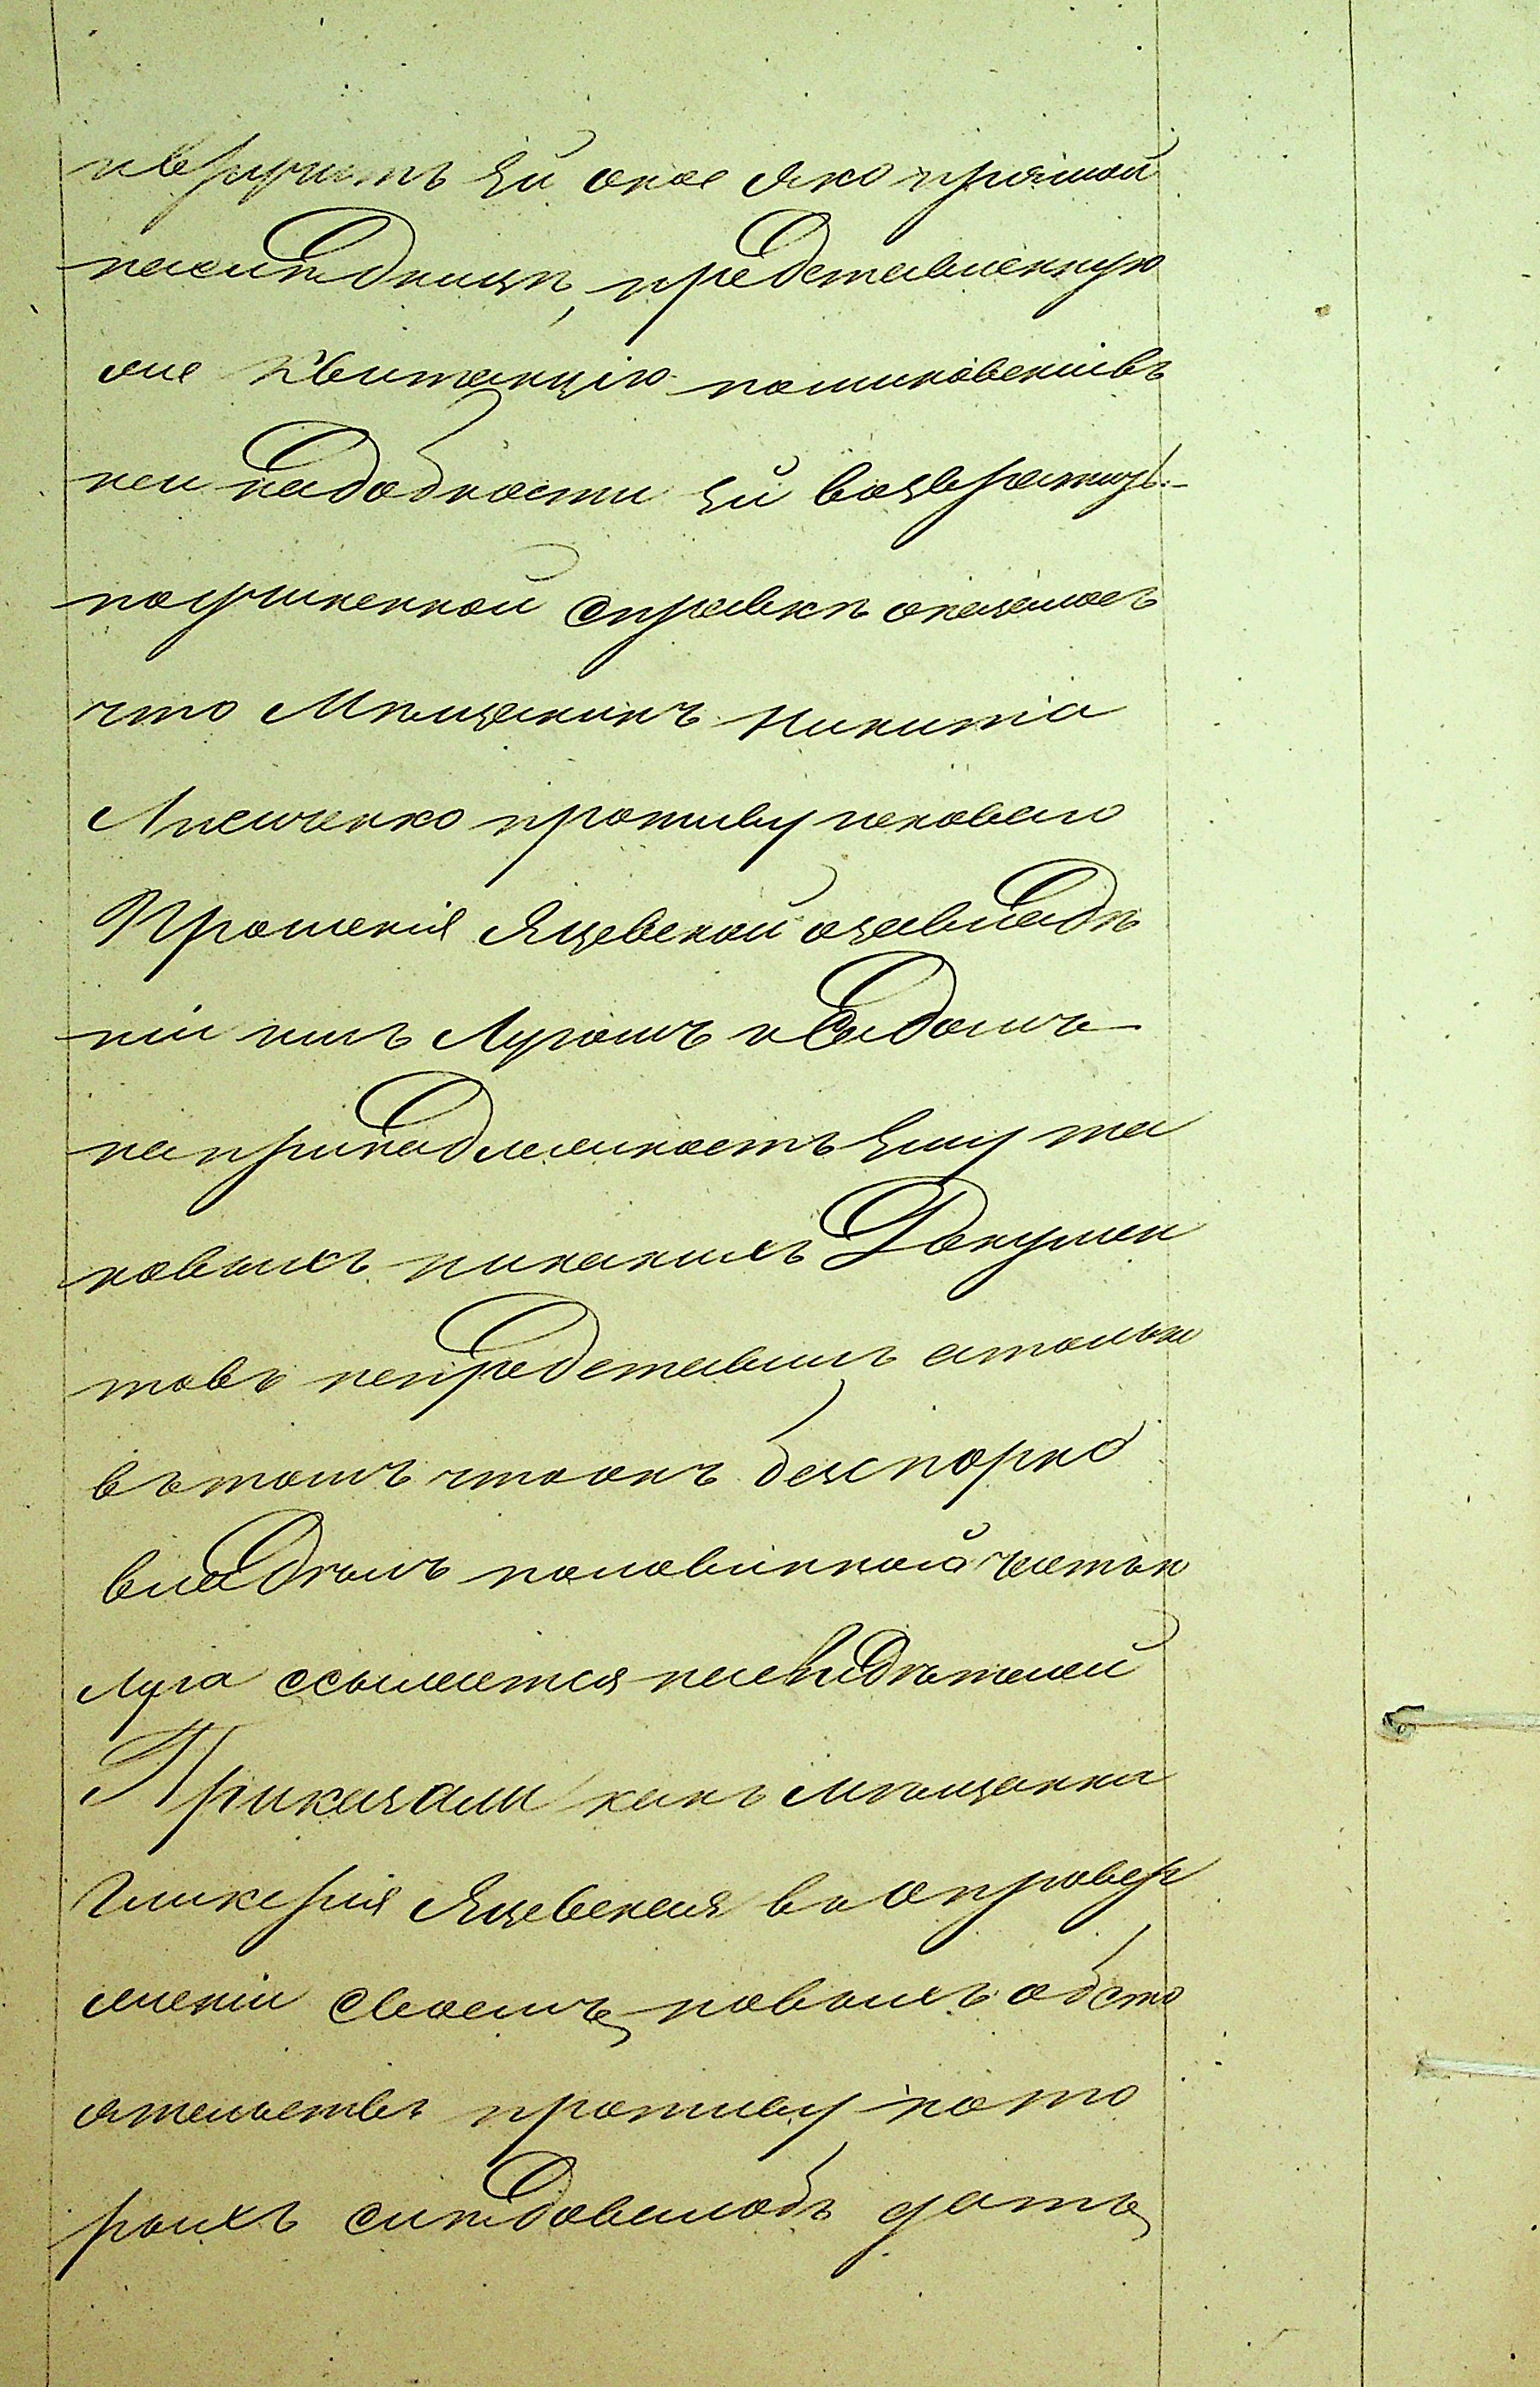 и вручить ей оное яко прямой
наследнице, представленную
же Квитанцію поминованіи въ
ней надобности ей возвратить.
по учиненной справкѣ оказалось
что Мѣщанинъ Никита
Лисиченко противу исковаго
Прошенія Яцевской о завладѣ
ніи имъ Лугомъ и Садомъ
на принадлежность ему та
ковыхъ никакихъ Докумен
товъ непредставилъ а только
въ томъ что онъ безспорно
владѣлъ половинной частью
луга ссылается на свидѣтелей
Приказали какъ мѣщанка
Гликерія Яцевская въ опровер
женіи своемъ новыхъ обсто
ятельствъ противу кото
рыхъ слѣдовалобъ дать